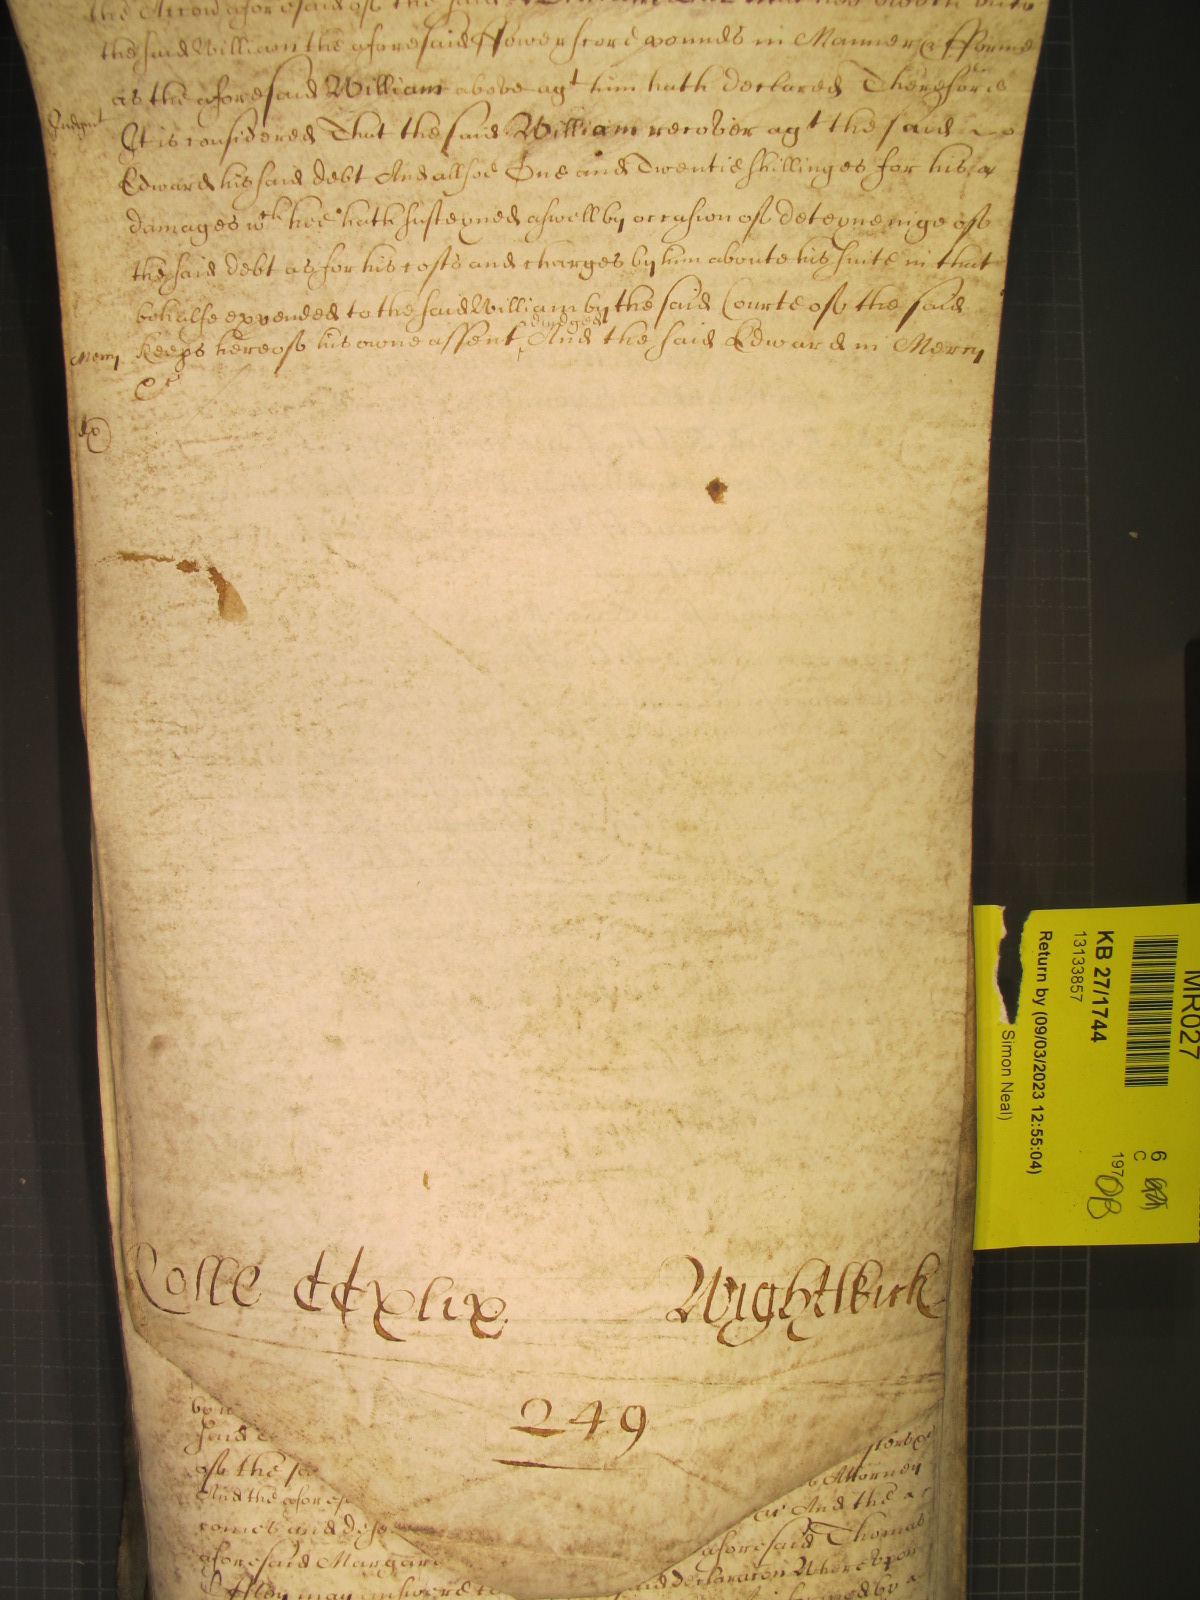 the Accion aforesaid of the said
the said William the aforesaid ffower score pounds in Manner & fforme
as the aforesaid William above agt him hath declared Therefore
Judgmt
It is considered That the said William recover agt the said
Edward his said debt And allsoe One and Twentie shillinges for his
damages wch hee hath susteyned aswell by occasion of deteyneinge of
the said debt as for his costs and charges by him aboute his suite in that
behalfe expended to the said William by the said Courte of the said
adjudged
Mercy
Keeps hereof his owne assent And the said Edward in Mercy
&c
Rolle CCxlix Wightwick
249
said
of the
And the afores
comes and defe
aforesaid Margar
may answere to
Attorney
And the
aforesaid Thomas
declaracon Whereupon
by a
MR027
KB 27/1744
13133857
Return by (09/03/2023 12:55:04)
Simon Neal)
6
C
197